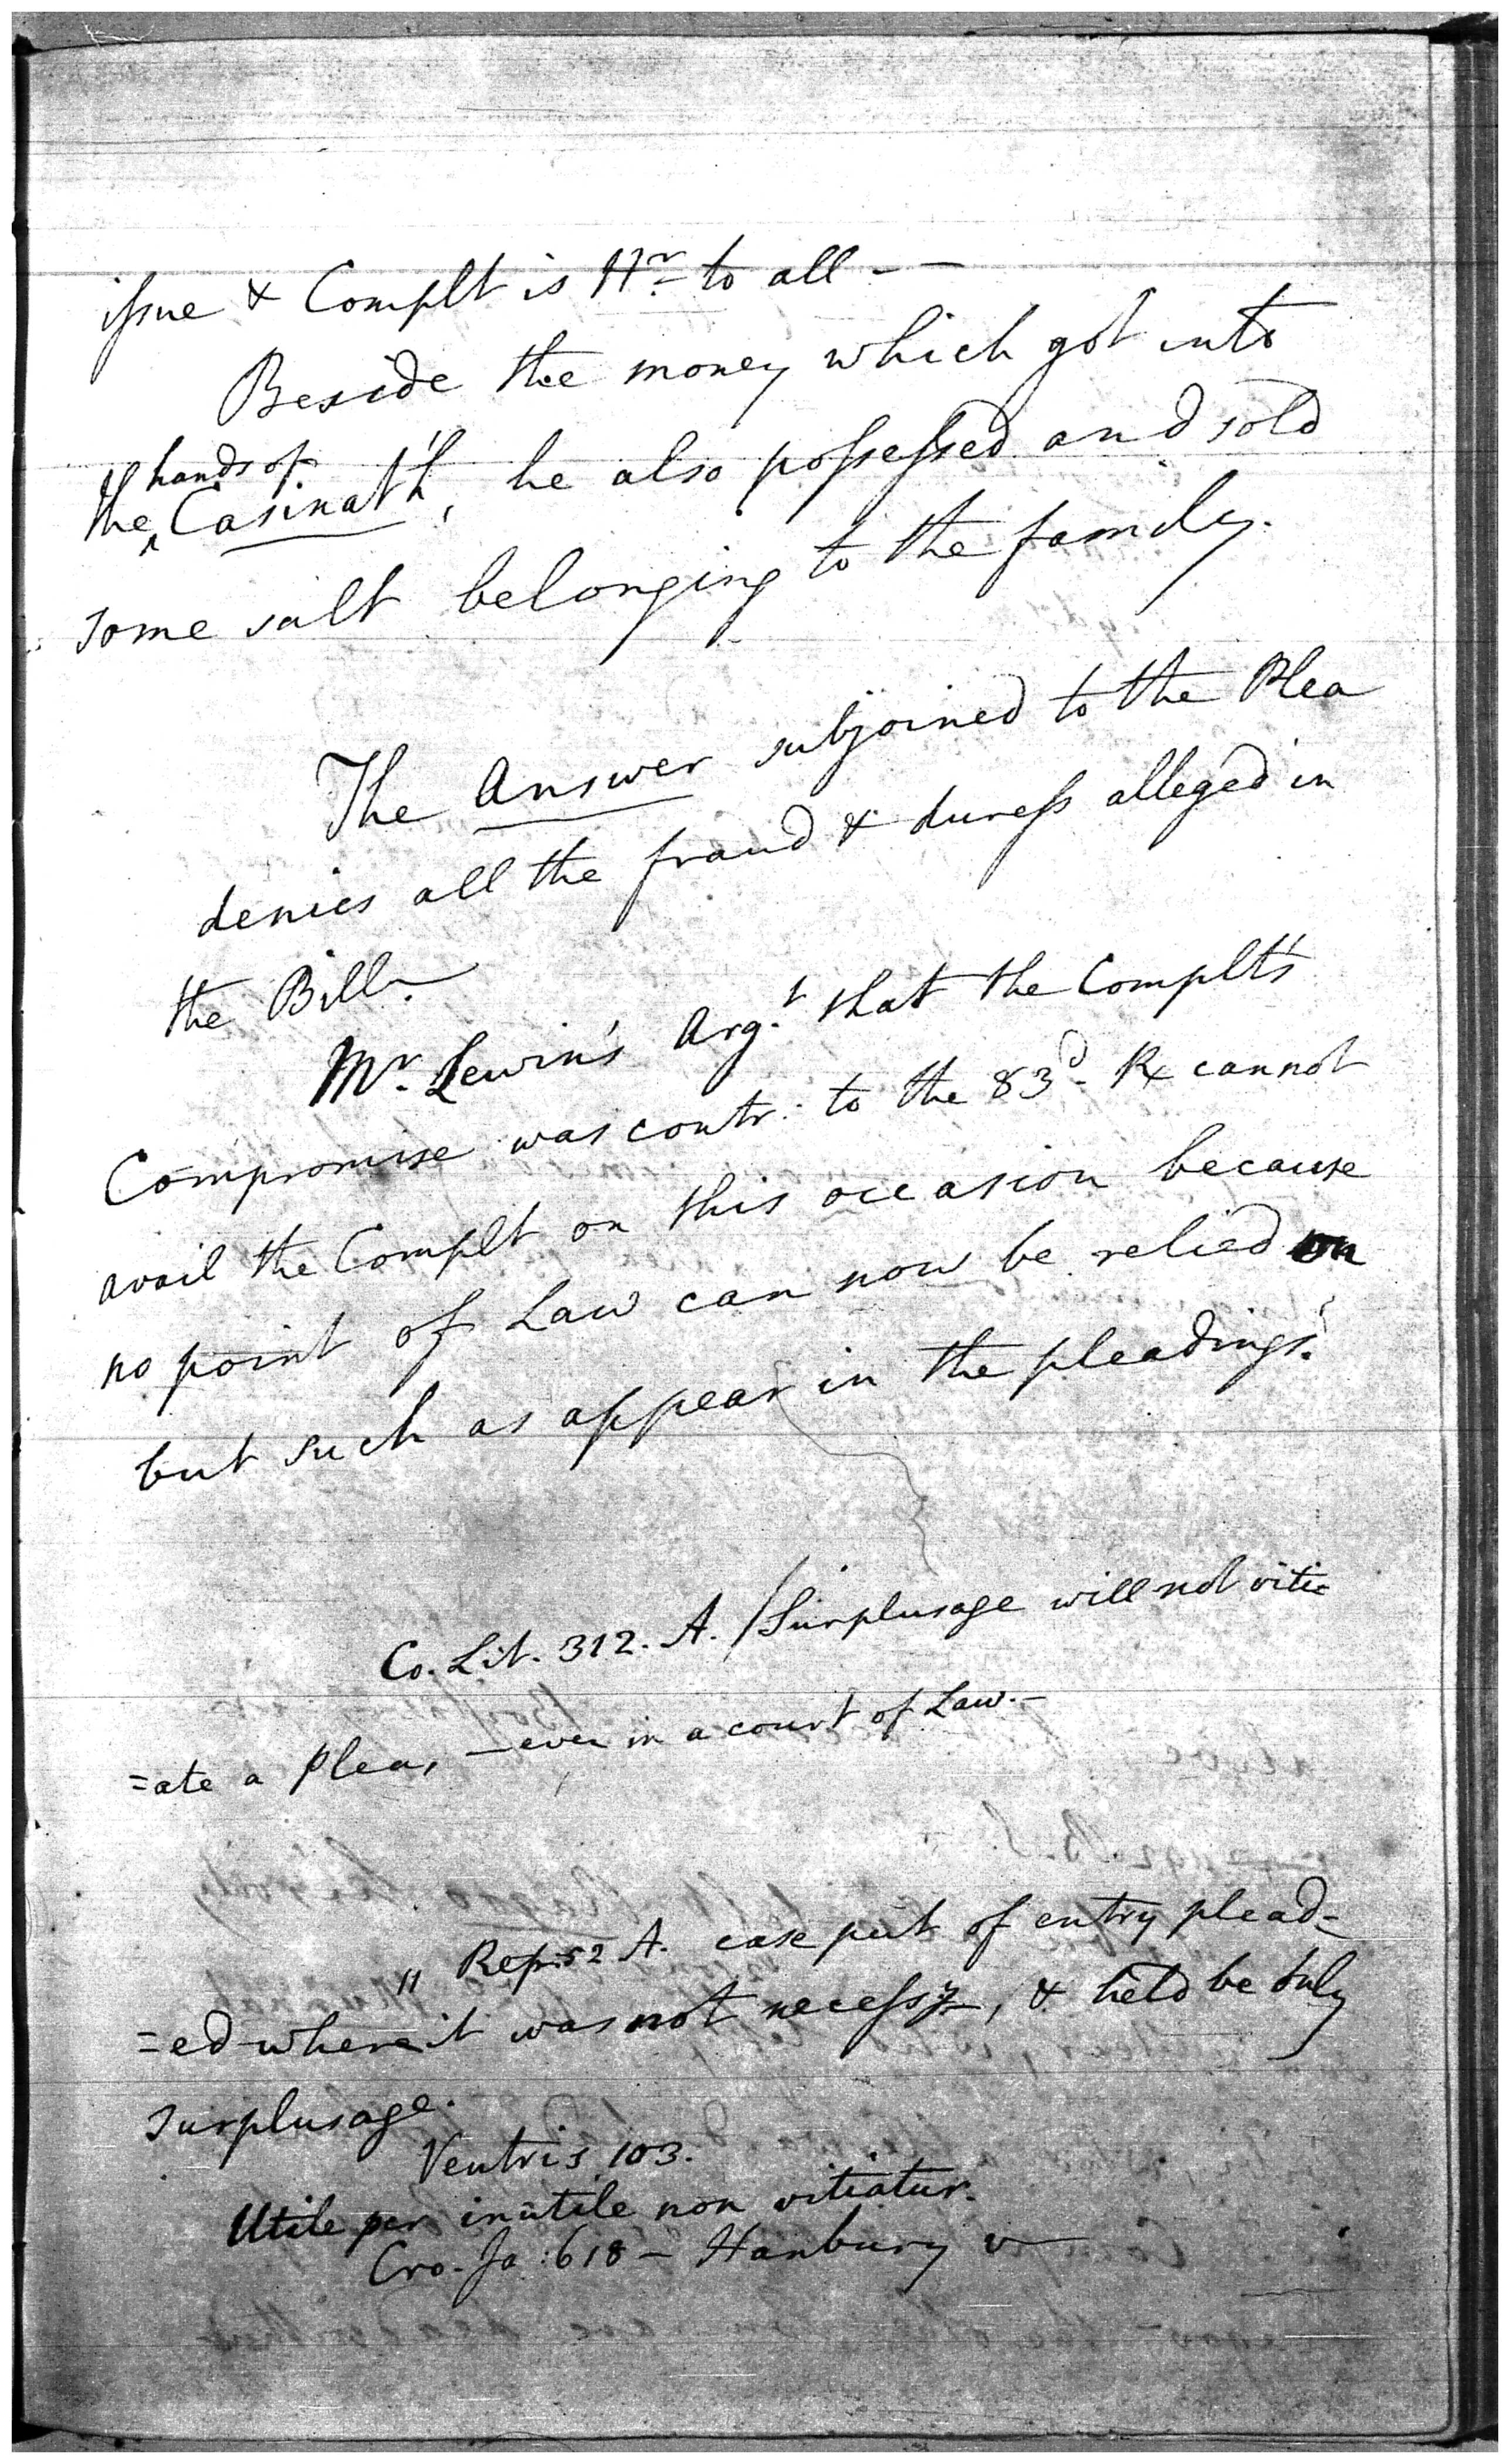 issue & Complt is Hr. to all - -
Beside the money which got into
the hands of Casinath, he also possessed and sold
some salt belonging to the family.
The Answer subjoined to the Plea
denies all the fraud & duress alleged in
the Bill.
Mr. Lewin's Arg.t that the Complt's
Compromise was contr. to the 83d. R cannot
avail the Complt on this occasion because
no point of Law can now be relied on
but such as appear in the pleadings.
Co. Lit. 312. A. / Surplusage will not viti=
=ate a Plea, — even in a court of Law. -
11 Rep: 52 A. case put of entry plead-
=ed where it was not necessy, & held be only
surplusage.
Ventris 103.
Utile per inutile non vitiatur.
Cro. Ja: 618 - Hanbury v —